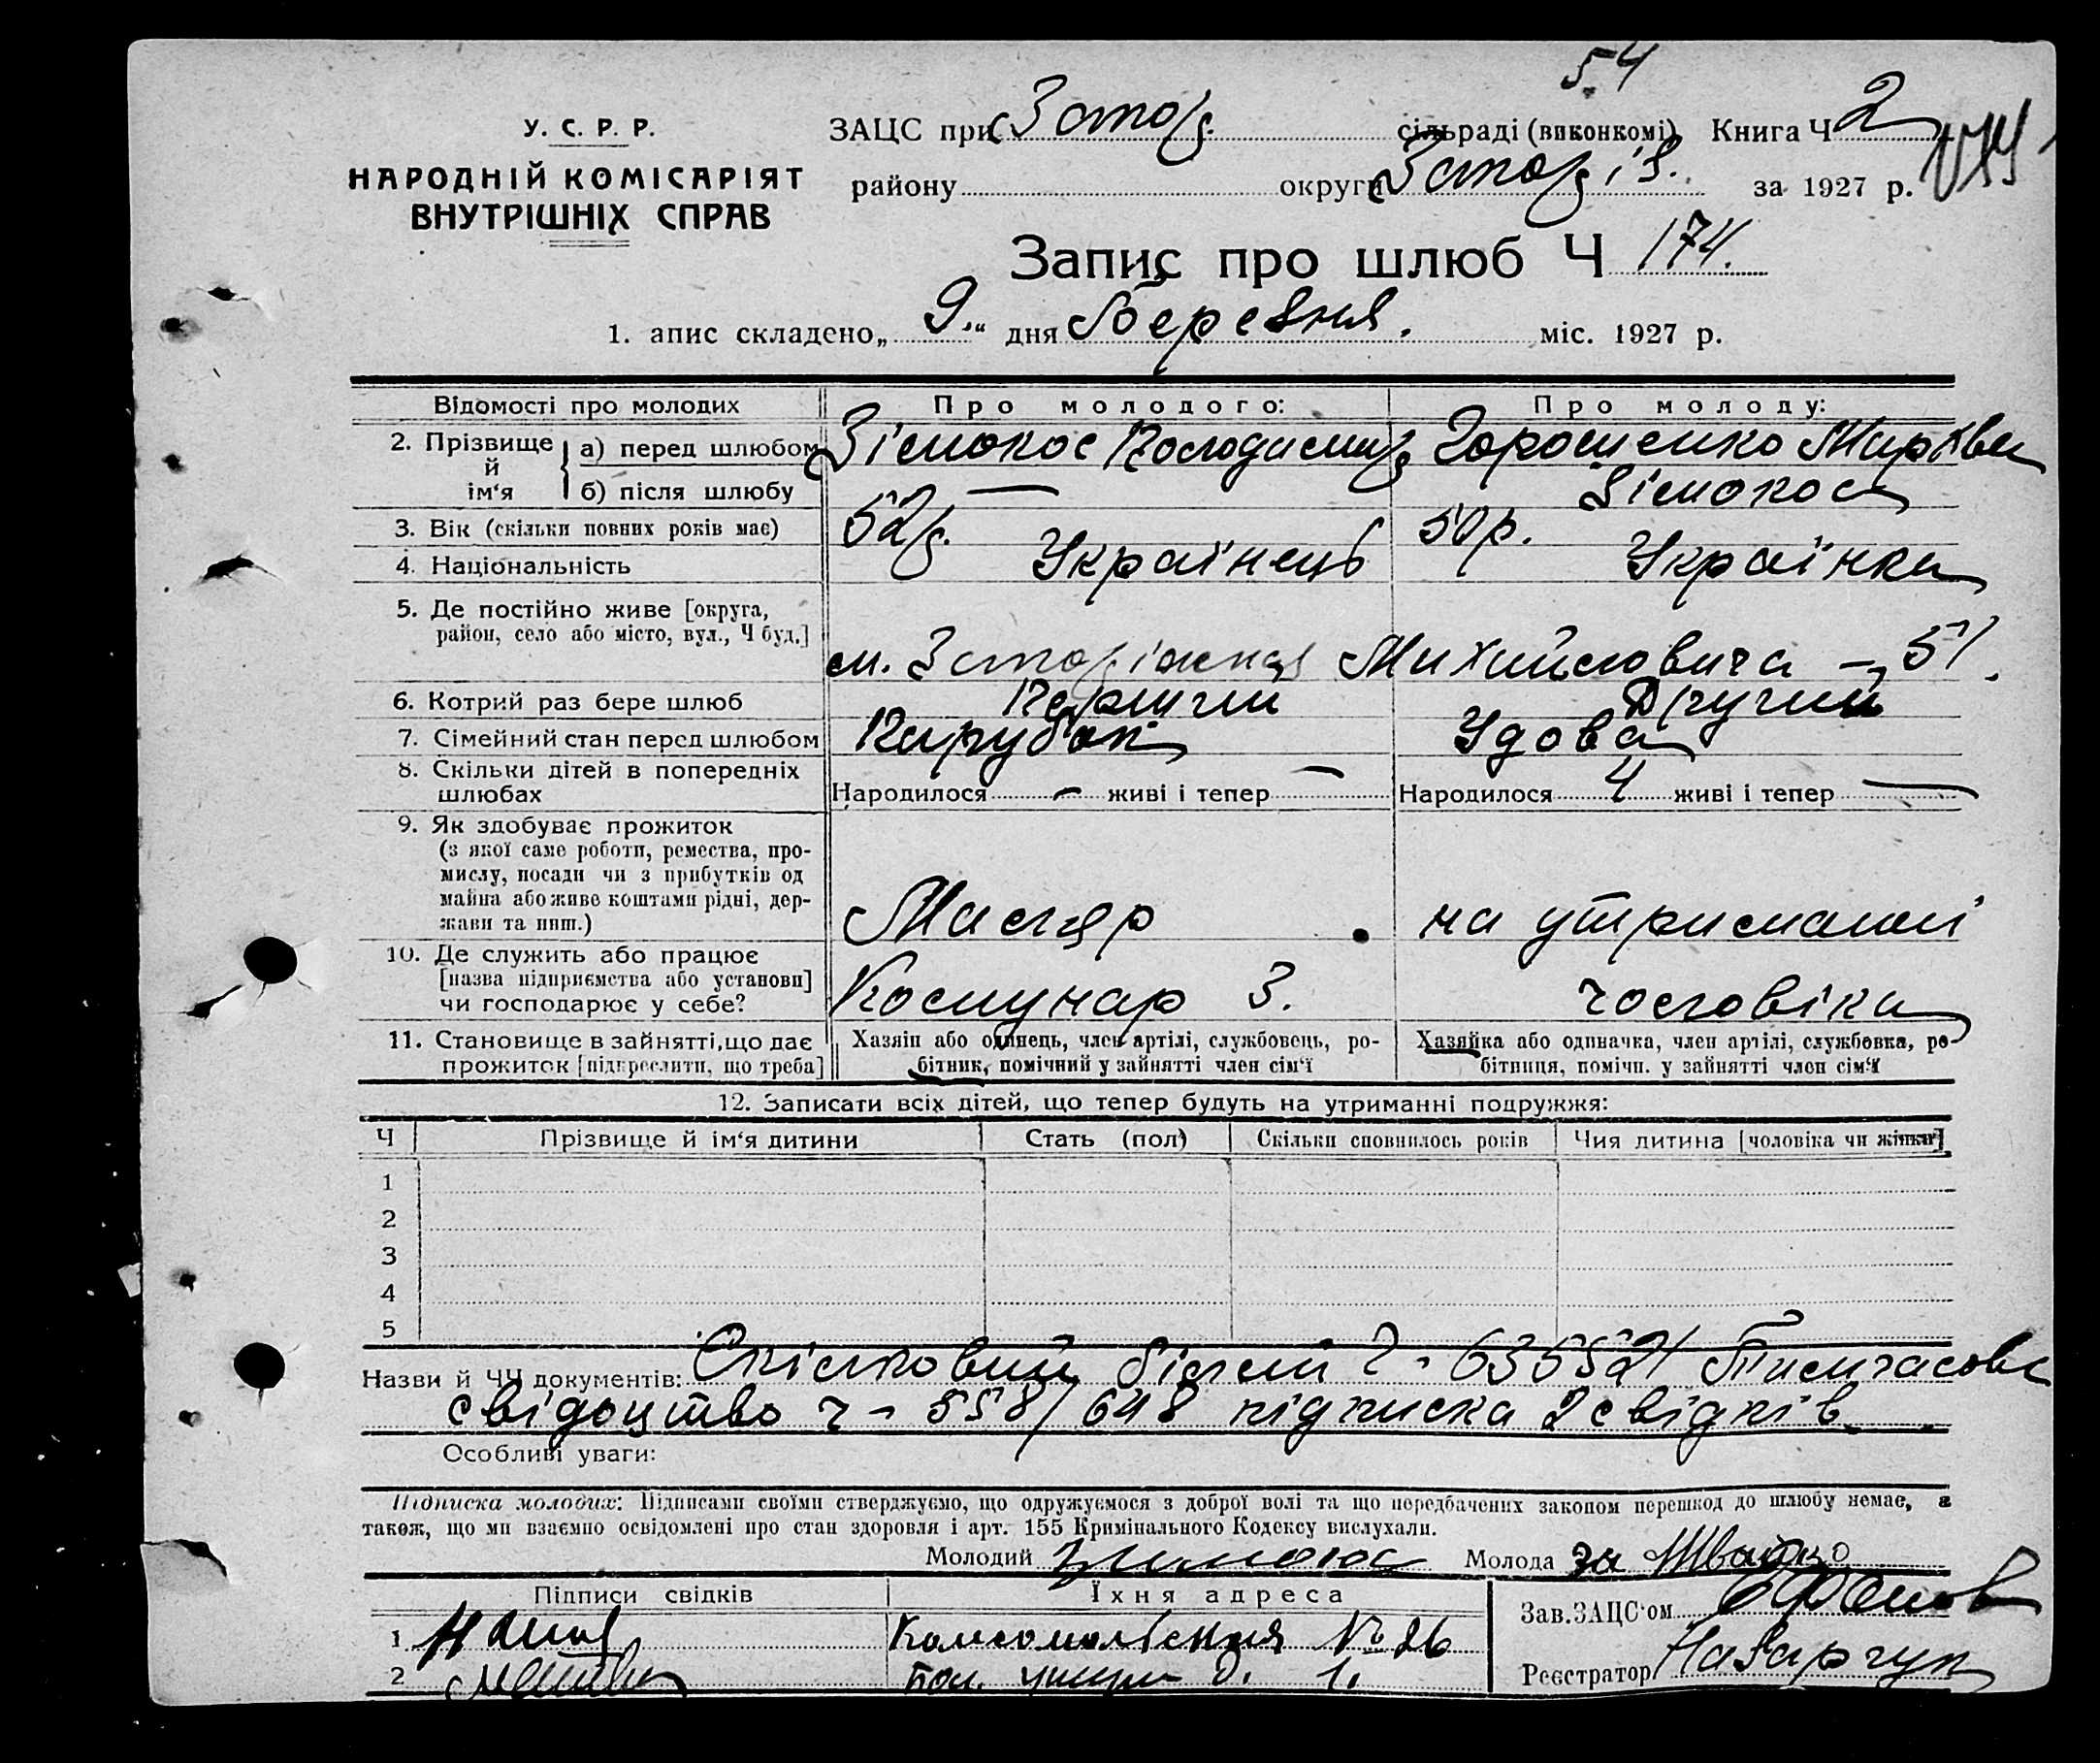 54
У. С. Р. Р.
НАРОДНІЙ КОМІСАРІЯТ
ВНУТРІШНІХ СПРАВ
ЗАЦС при Запор. сільраді (виконкомі) Книга Ч 2
району округи Запоріз. за 1927 р.
Запис про шлюб Ч 174.
1. апис складено „9.“ дня Березня. міс. 1927 р.
Відомості про молодих Про молодого: Про молоду:
2. Прізвище й ім‘я
а) перед шлюбом Зімокос Володимир Горошенко Марква
б) після шлюбу — Зімокос
3. Вік (скільки повних років має) 52р. 50р.
4. Національність Українець Українка
5. Де постійно живе [округа,
район, село або місто, вул., Ч буд.]
м. Запоріжжя Михайловича – 51.
6. Котрий раз бере шлюб Перший Другий
7. Сімейний стан перед шлюбом Парубок Удова
8. Скільки дітей в попередніх
шлюбах Народилося – живі і тепер — Народилося 4 живі і тепер —
9. Як здобуває прожиток
(з якої саме роботи, ремества, про-
мислу, посади чи з прибутків од
майна або живе коштами рідні, дер-
жави та инш.) Мастер на утриманні
10. Де служить або працює
[назва підприємства або установи]
чи господарює у себе? Комунар З. чоловіка
11. Становище в зайнятті, що дає
прожиток [підкреслити, що треба]
Хазяїн або одинець, член артілі, службовець, ро-
бітник, помічний у зайнятті член сім‘ї
Хазяйка або одиначка, член артілі, службовка, ро-
бітниця, помічн. у зайнятті член сім‘ї
12. Записати всіх дітей, що тепер будуть на утриманні подружжя:
Ч Прізвище й ім‘я дитини Стать (пол) Скільки сповнилось років Чия дитина [чоловіка чи жінки]
1
2
3
4
5
Назви й ЧЧ документів: Спілковий білет ч – 635521 Тимчасове
свідоцтво ч – 558/648 підписка 2 свідків
Особливі уваги:
Підписка молодих: Підписами своїми стверджуємо, що одружуємося з доброї волі та що передбачених законом перешкод до шлюбу немає, а
також, що ми взаємно освідомлені про стан здоровля і арт. 155 Кримінального Кодексу вислухали.
Молодий Молода за
Підписи свідків Їхня адреса
Зав. ЗАЦС‘ом
1 Комсомольская № 26
Реєстратор Назарчук
2 1.